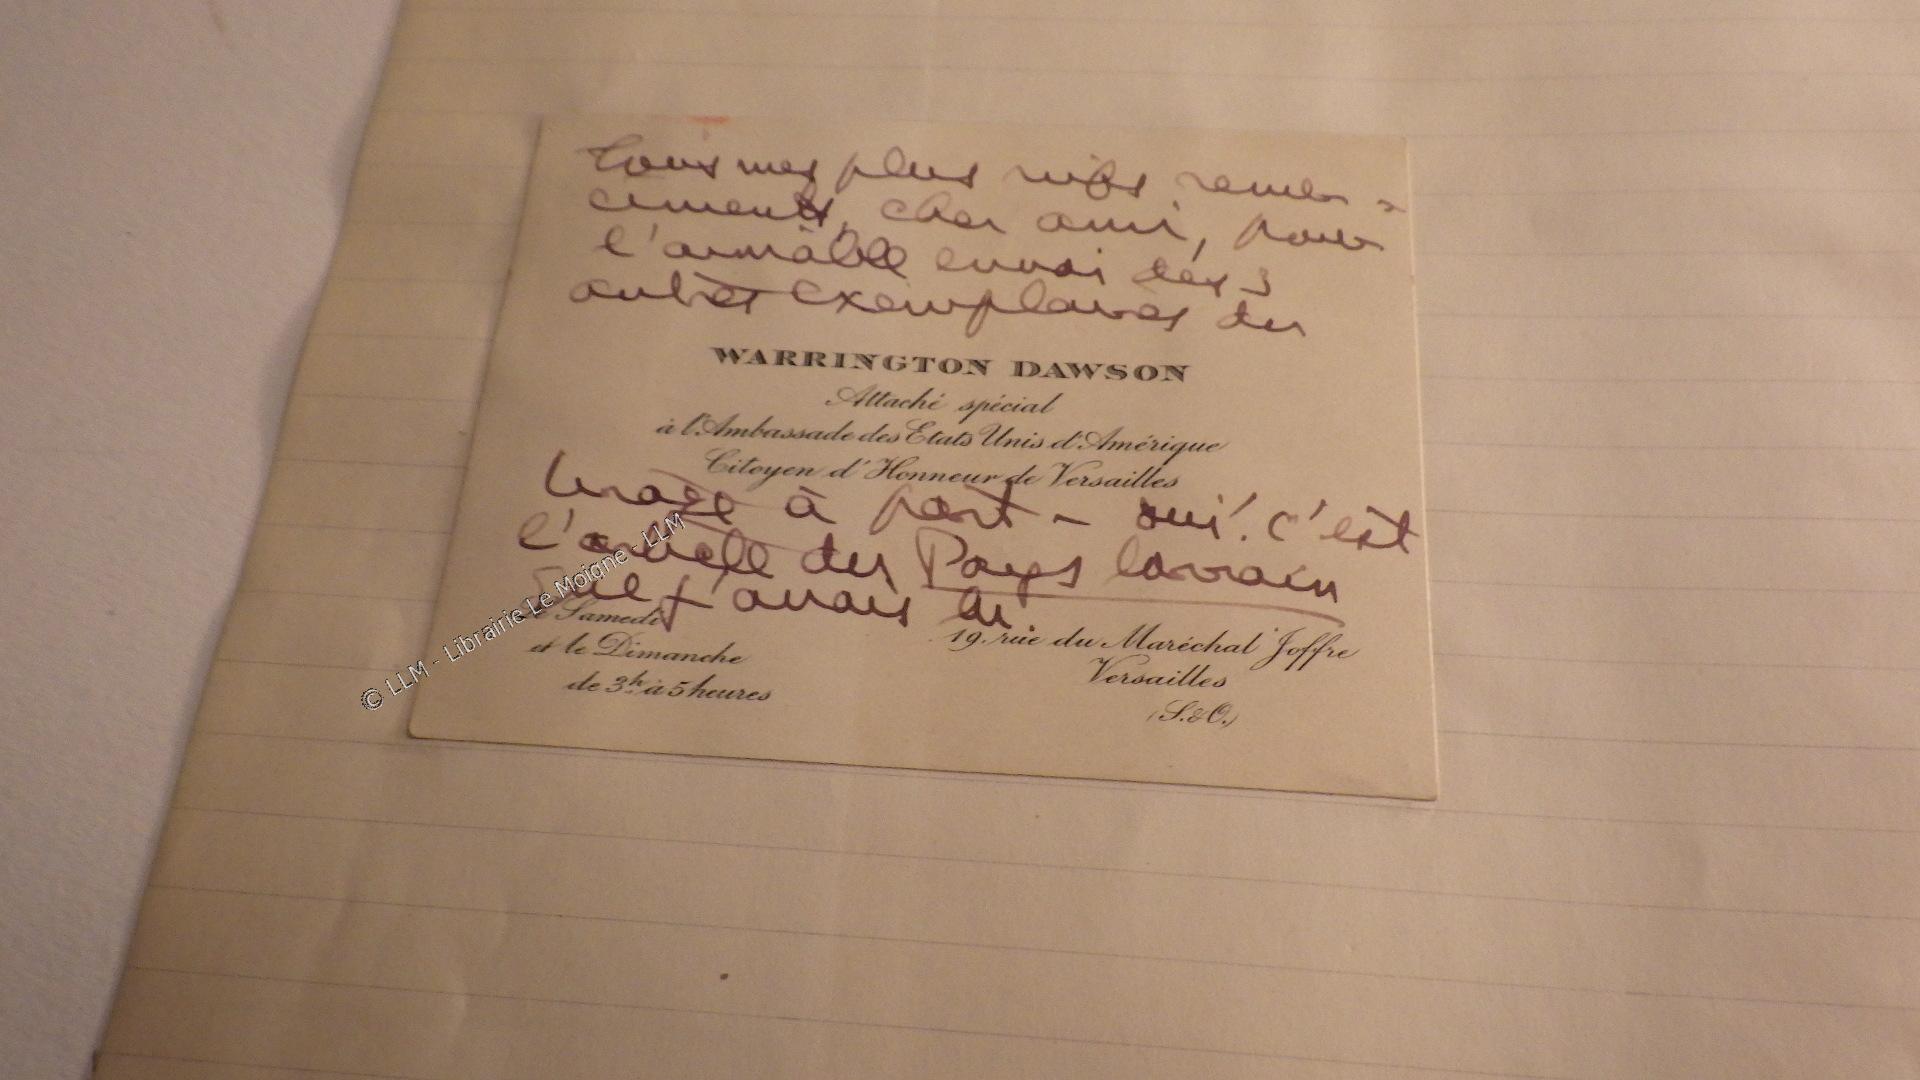 Tous mes plus vifs remer-
ciements, cher ami, pour
l'aimable envoi des 3
autres exemplaires du
WARRINGTON DAWSON
Attaché spécial
à l'Ambassade des Etats Unis d'Amérique
Citoyen d'Honneur de Versailles
tirage à part - oui! c'est
l'article du Pays lorrain
que j'avais lu.
le Samedi
et le Dimanche
de 3h à 5 heures
19, rue du Maréchal Joffre
Versailles
(S.&O.)
© LLM - Librairie Le Moigne - LLM